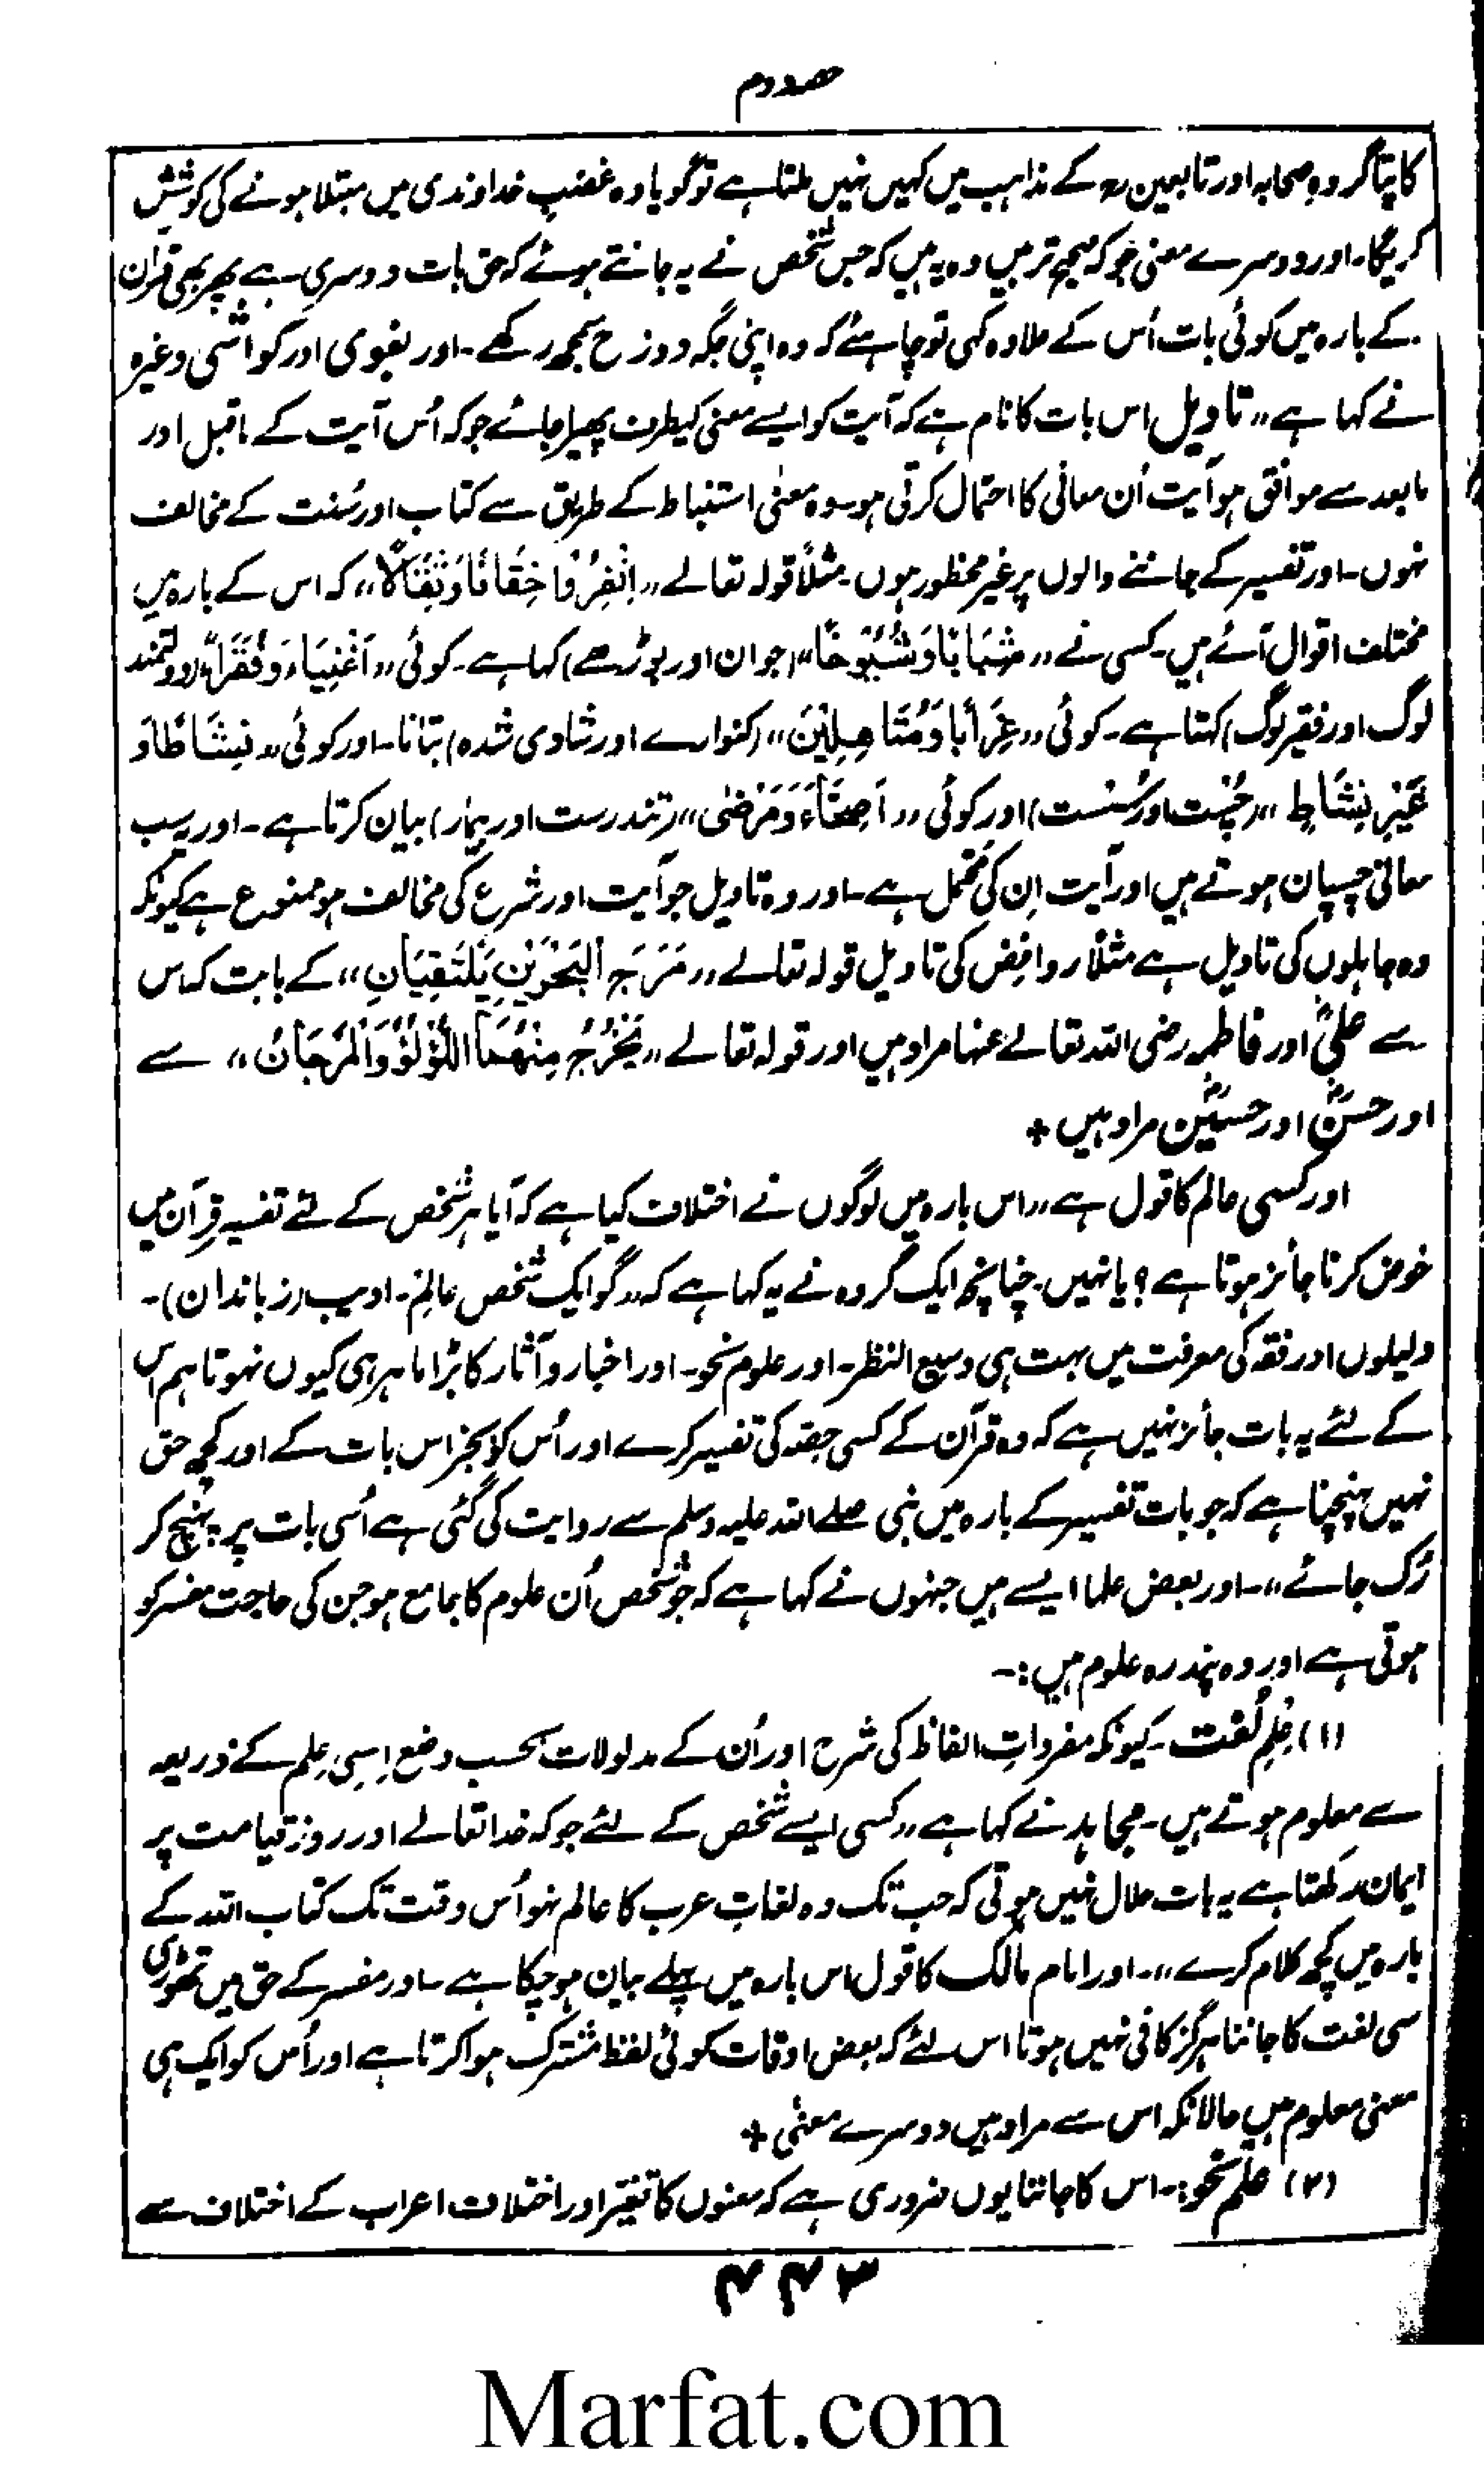 حصہ دوم
کا پتا گروہِ صحابہ اور تابعین رح کے مذاہب میں کہیں نہیں ملتا ہے تو گویا وہ غضبِ خداوندی میں مبتلا ہونے کی کوشش
کریگا۔ اور دوسرے معنی جو کہ صحیح تر ہیں وہ یہ ہیں کہ جس شخص نے یہ جانتے ہوئے کہ حق بات دوسری ہے پھر بھی قرآن
کے بارہ میں کوئی بات اُس کے علاوہ کہی تو چاہئے کہ وہ اپنی جگہ دوزخ سمجھ رکھے۔ اور بغوی اور کواشی وغیرہ
نے کہا ہے „تاویل اس بات کا نام ہے کہ آیت کو ایسے معنی کیطرف پھیرا جائے جو کہ اُس آیت کے ماقبل اور
مابعد سے موافق ہو آیت اُن معانی کا احتمال کرتی ہو۔ وہ معنٰی استنباط کے طریق سے کتاب اور سُنت کے مخالف
نہوں۔ اور تفسیر کے جاننے والوں پر غیر محظور ہوں۔ مثلاً قولہ تعالےٰ „اِنْفِرُوْا خِفَافًا وَّثِقَالًا“ کہ اس کے بارہ میں
مختلف اقوال آئے ہیں۔ کسی نے „شَبَابًا وَّشُیُوْخًا“ (جوان اور بوڑھے) کہا ہے۔ کوئی „اَغْنِیَاءَ وَفُقَرَاءَ“ (دولتمند
لوگ اور فقیر لوگ) کہتا ہے۔ کوئی „عِزَابًا وَّمُتَاھِلِیْنَ“ (کنوارے اور شادی شدہ) بتاتا۔ اور کوئی „نِشَاطًا وَ
غَیْرِ نِشَاطٍ“ (چُست اور سُست) اور کوئی „اَصِحَّاءَ وَمَرْضٰی“ (تندرست اور بیمار) بیان کرتا ہے۔ اور یہ سب
معانی چسپان ہوتے ہیں اور آیت اِن کی مُحتمل ہے۔ اور وہ تاویل جو آیت اور شرع کی مخالف ہو ممنوع ہے کیونکہ
وہ جاہلوں کی تاویل ہے مثلاً روافِض کی تاویل قولہ تعالےٰ „مَرَجَ الْبَحْرَیْنِ یَلْتَقِیَانِ“ کے بابت کہ اس
سے علیؓ اور فاطمہ رضی اللہ تعالےٰ عنہا مراد ہیں اور قولہ تعالےٰ „یَخْرُجُ مِنْھُمَا اللُّؤْلُؤُ وَالْمَرْجَانُ“ سے
اور حسنؓ اور حسینؓ مراد ہیں +
اور کسی عالم کا قول ہے „اس بارہ میں لوگوں نے اختلاف کیا ہے کہ آیا ہر شخص کے لئے تفسیر قرآن میں
خوض کرنا جائز ہوتا ہے؟ یا نہیں۔ چنانچہ ایک گروہ نے یہ کہا ہے کہ „گو ایک شخص عالِم۔ ادیب (زباندان)۔
دلیلوں اور فقہ کی معرفت میں بہت ہی وسیع النظر۔ اور علوم نحو۔ اور اخبار و آثار کا بڑا ماہر ہی کیوں نہو تاہم اس
کے لئے یہ بات جائز نہیں ہے کہ وہ قرآن کے کسی حِصّہ کی تفسیر کرے اور اُس کو بجز اس بات کے اور کچھ حق
نہیں پہنچتا ہے کہ جو بات تفسیر کے بارہ میں نبی صلے اللہ علیہ وسلم سے روایت کی گئی ہے اُسی بات پر پہنچ کر
رُک جائے“۔ اور بعض علما ایسے ہیں جنہوں نے کہا ہے کہ جو شخص اُن علوم کا جامع ہو جن کی حاجت مفسر کو
ہوتی ہے اور وہ پندرہ علوم ہیں:۔
(۱) عِلمِ لُغت۔ کیونکہ مفرداتِ الفاظ کی شرح اور اُن کے مدلولات بحسب وضع اِسی عِلم کے ذریعہ
سے معلوم ہوتے ہیں۔ مجاہد نے کہا ہے „کسی ایسے شخص کے لئے جو کہ خدا تعالےٰ اور روزِ قیامت پر
ایمان رکھتا ہے یہ بات حلال نہیں ہوتی کہ جب تک وہ لغاتِ عرب کا عالم نہو اُس وقت تک کتاب اللہ کے
بارہ میں کچھ کلام کرے“۔ اور امام مالک کا قول اس بارہ میں پہلے بیان ہو چکا ہے۔ اور مفسر کے حق میں تھوڑی
سی لغت کا جاننا ہرگز کافی نہیں ہوتا اس لئے کہ بعض اوقات کوئی لفظ مشترک ہوا کرتا ہے اور اُس کو ایک ہی
معنی معلوم ہیں حالانکہ اس سے مراد ہیں دوسرے معنٰی +
(۲) علم نحو:۔ اس کا جاننا یوں ضروری ہے کہ معنوں کا تغیّر اور اختلاف اعراب کے اختلاف سے
۴۴۶
Marfat.com